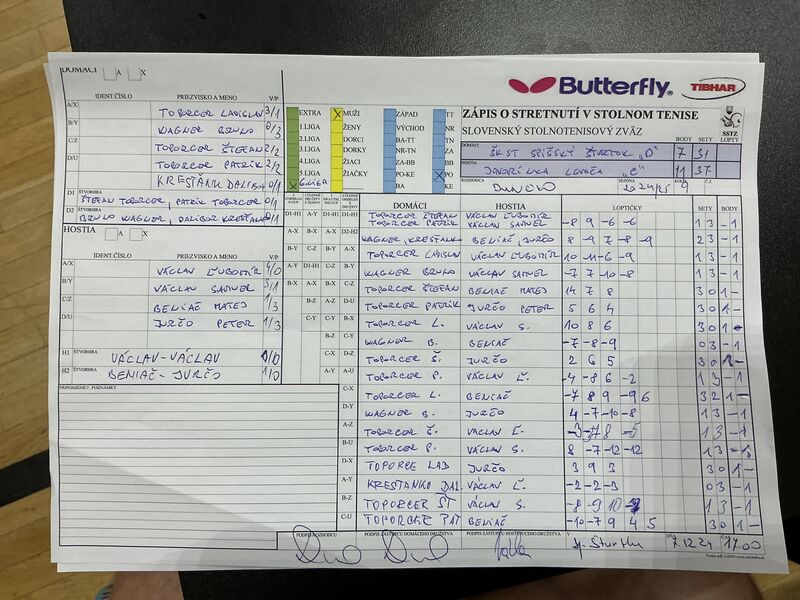 Butterfly
TIBHAR
DOMÁCI A X
IDENT ČÍSLO PRIEZVISKO A MENO V/P
A/X TOPORCER LADISLAV 3/1
B/Y WAGNER BRUNO 0/3
C/Z TOPORCER ŠTEFAN 2/2
D/U TOPORCER PATRIK 2/2
KRESŤANKO DALIBOR 0/1
D1 ŠTVORHRA ŠTEFAN TOPORCER, PATRIK TOPORCER 0/1
D2 ŠTVORHRA BRUNO WAGNER, DALIBOR KRESŤANKO 0/1
HOSTIA A X
IDENT ČÍSLO PRIEZVISKO A MENO V/P
A/X VÁCLAV ĽUBOMÍR 4/0
B/Y VÁCLAV SAMUEL 3/1
C/Z BENIAČ MATEJ 1/3
D/U JURČO PETER 1/3
H1 ŠTVORHRA VÁCLAV-VÁCLAV 1/0
H2 ŠTVORHRA BENIAČ-JURČO 1/0
PRIPOMIENKY, POZNÁMKY
EXTRA X MUŽI ZÁPAD TT
1.LIGA ŽENY VÝCHOD NR
2.LIGA DORCI BA-TT TN
3.LIGA DORKY NR-TN ZA
4.LIGA ŽIACI ZA-BB BB
5.LIGA ŽIAČKY PO-KE X PO
X 6.LIGA BA KE
ZÁPIS O STRETNUTÍ V STOLNOM TENISE
SLOVENSKÝ STOLNOTENISOVÝ ZVÄZ
SSTZ
BODY SETY LOPTY
DOMÁCI ŠK ST SPIŠSKÝ ŠTVRTOK "D" 7 31
HOSTIA JAVORINKA LEVOČA "C" 11 37
ROZHODCA SEZÓNA 2024/25 9 Č.Z.
DOMÁCI HOSTIA LOPTIČKY SETY BODY
D1-H1 A-Y D1-H1 D1-H1 TOPORCER ŠTEFAN VÁCLAV ĽUBOMÍR
TOPORCER PATRIK VÁCLAV SAMUEL -8 9 -6 -6 1 3 -1
A-X B-X A-X D2-H2 WAGNER, KRESŤANKO BENIAČ, JURČO 8 -9 7 -8 -9 2 3 -1
B-Y C-Z B-Y A-X TOPORCER LADISLAV VÁCLAV ĽUBOMÍR 10 -11 -6 -9 1 3 -1
A-Y D1-H1 C-Z B-Y WAGNER BRUNO VÁCLAV SAMUEL -7 7 -10 -8 1 3 -1
B-X A-X B-X C-Z TOPORCER ŠTEFAN BENIAČ MATEJ 14 7 8 3 0 1 -
B-Z A-Z D-U TOPORCER PATRIK JURČO PETER 5 6 4 3 0 1 -
C-Y C-Y A-Y TOPORCER L. VÁCLAV S. 10 8 6 3 0 1
B-Z WAGNER B. BENIAČ -7 -8 -9 0 3 -1
C-X D-Z TOPORCER Š. JURČO 2 6 5 3 0 1 -
A-Y A-U TOPORCER P. VÁCLAV Ľ. -4 -8 6 -2 1 3 -1
C-X TOPORCER L. BENIAČ -7 8 9 -9 6 3 2 1 -
D-Y WAGNER B. JURČO 4 -7 -10 -8 1 3 -1
A-Z TOPORCER Š. VÁCLAV Ľ. 1 3 -1
B-U TOPORCER P. VÁCLAV S. 8 -7 -12 -12 1 3 -1
D-X TOPORCE LAD JURČO 3 9 3 3 0 1 -
A-Y KRESTANKO DAL VÁCLAV Ľ. -2 -2 -3 0 3 -1
B-Z TOPORCER ŠT VÁCLAV S. -8 -9 10 1 3 -1
C-U TOPORCER PAT BENIAČ -10 -7 9 4 5 3 0 1 -
PODPIS ROZHODCU PODPIS ZÁSTUPCU DOMÁCEHO DRUŽSTVA PODPIS ZÁSTUPCU HOSŤUJÚCEHO DRUŽSTVA V 7.12.24 17.00